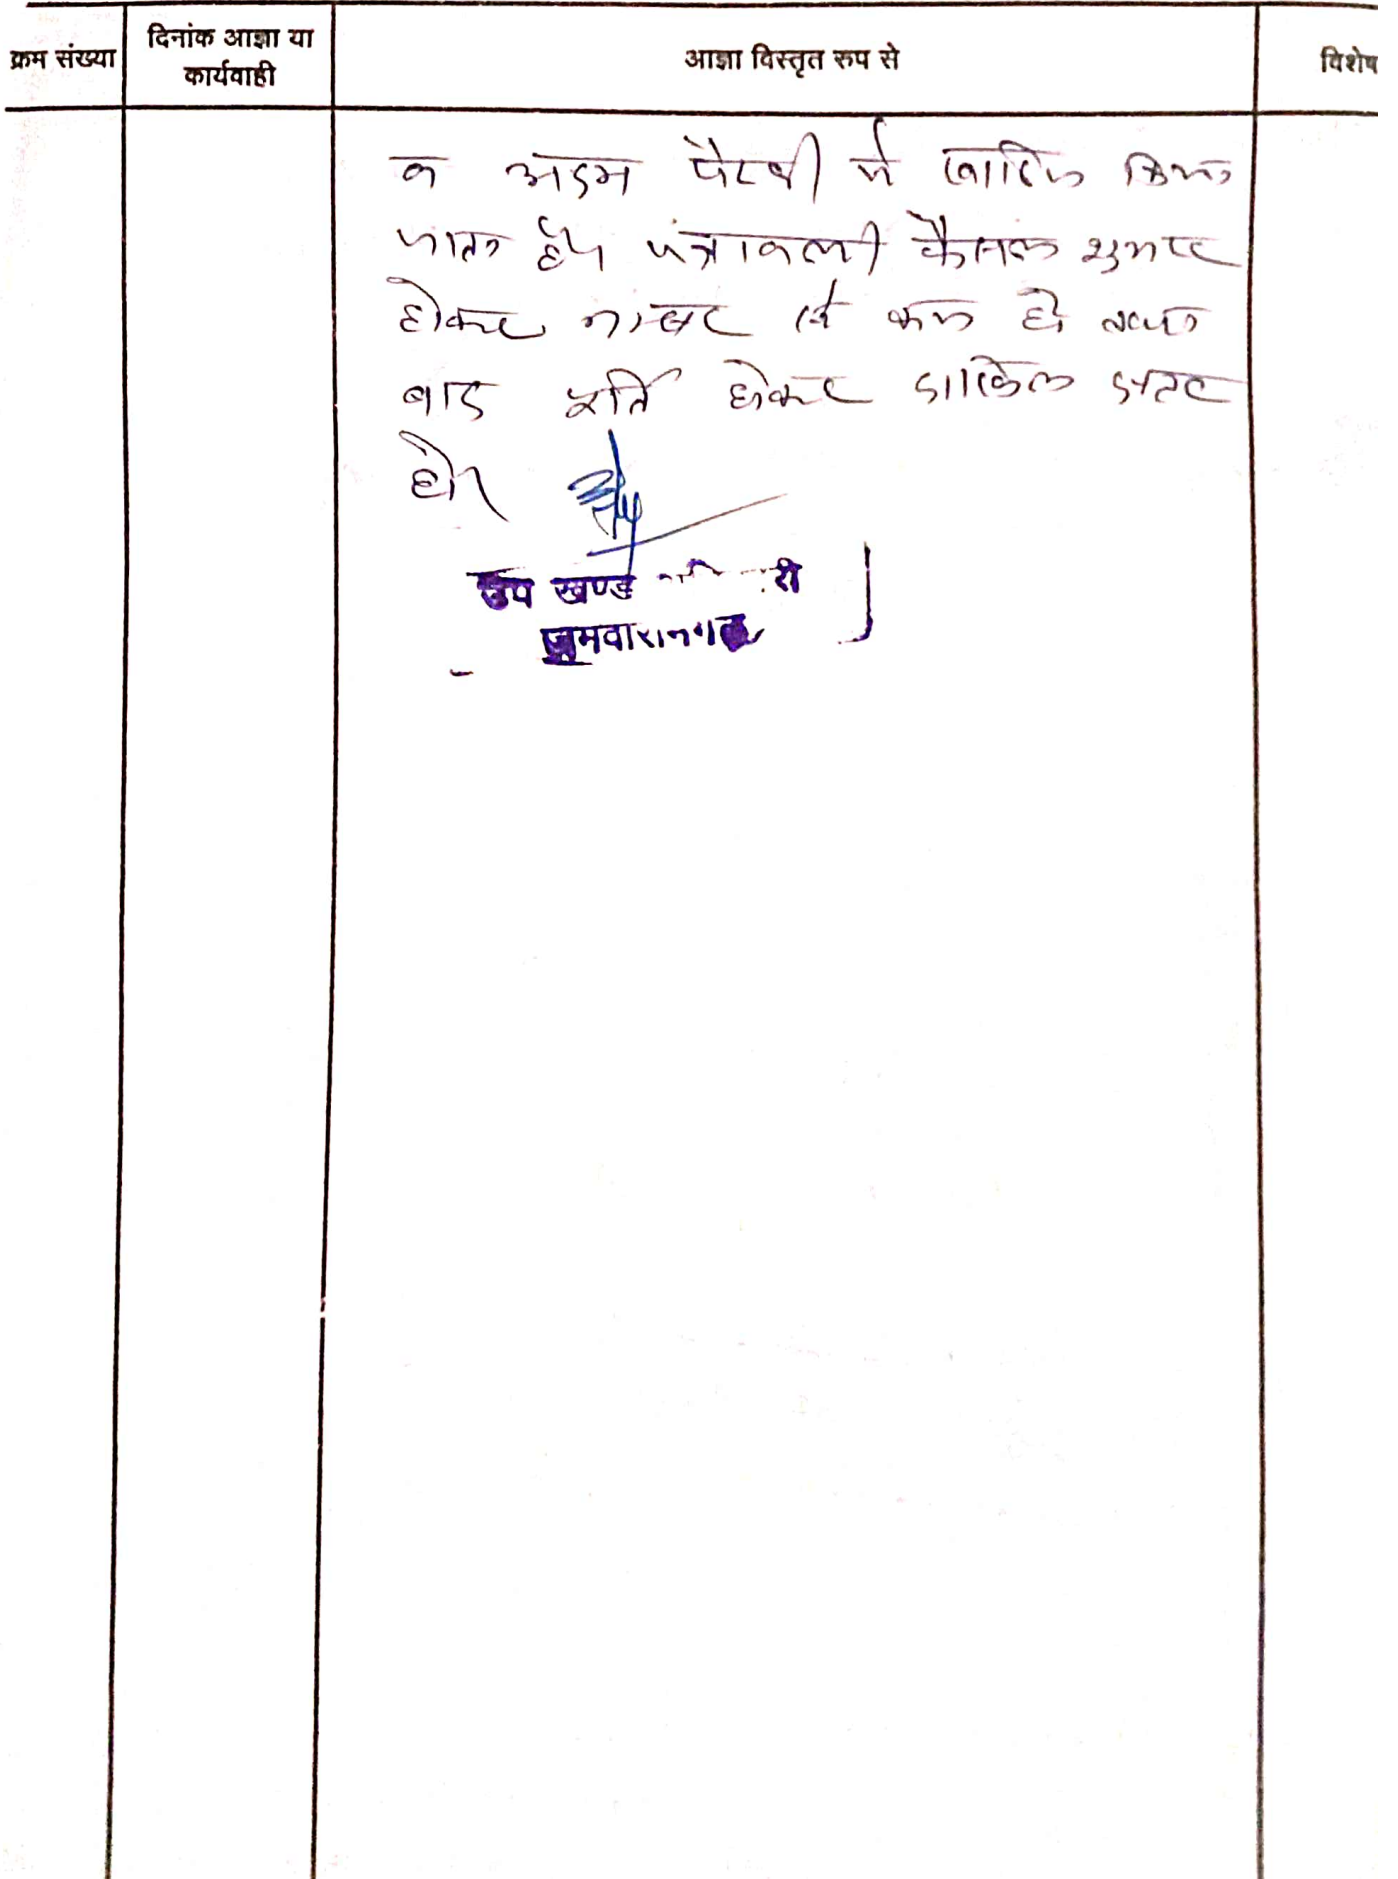 क्रम संख्या
दिनांक आज्ञा या
कार्यवाही
आज्ञा विस्तृत रूप से
विशेष
व अदम पैरवी में खारिज किया
जाता है। पत्रावली फैसल शुमार
होकर नम्बर से कम हो
बाद पूर्ति होकर दाखिल दफ्तर
हो।
उप खण्ड
जमवारामगढ